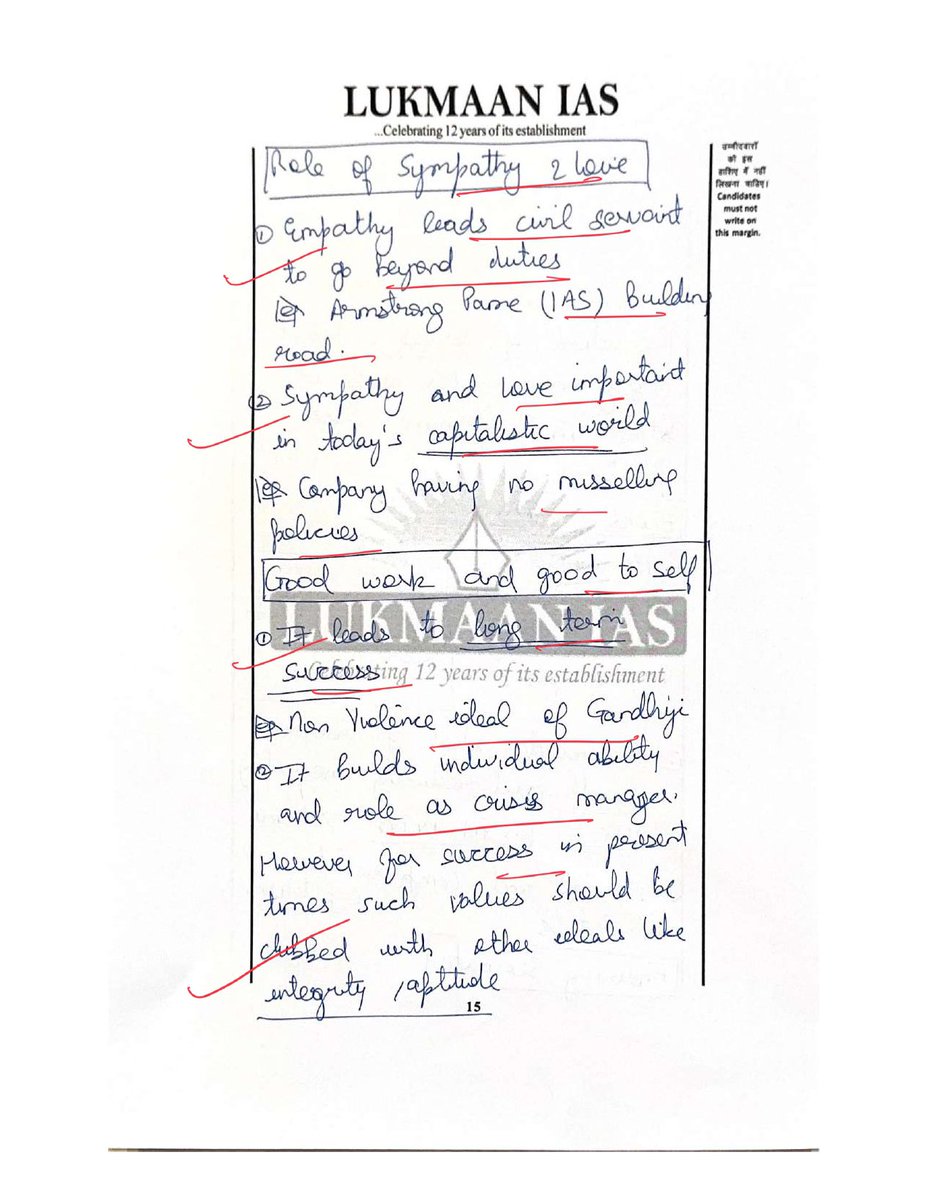 LUKMAAN IAS
...Celebrating 12 years of its establishment
उम्मीदवारों
को इस
हाशिए में नहीं
लिखना चाहिए।
Candidates
must not
write on
this margin.
Role of Sympathy & Love
① Empathy leads civil servant
to go beyond duties
eg Armstrong Pame (IAS) Building
road.
② Sympathy and love important
in today's capitalistic world
eg Company having no misselling
policies
Good work and good to self
LUKMAAN IAS
① It leads to long term
success
Celebrating 12 years of its establishment
eg Non Violence ideal of Gandhiji
② It builds individual ability
and role as crisis manager.
However for success in present
times such values should be
clubbed with other ideals like
integrity, aptitude
15